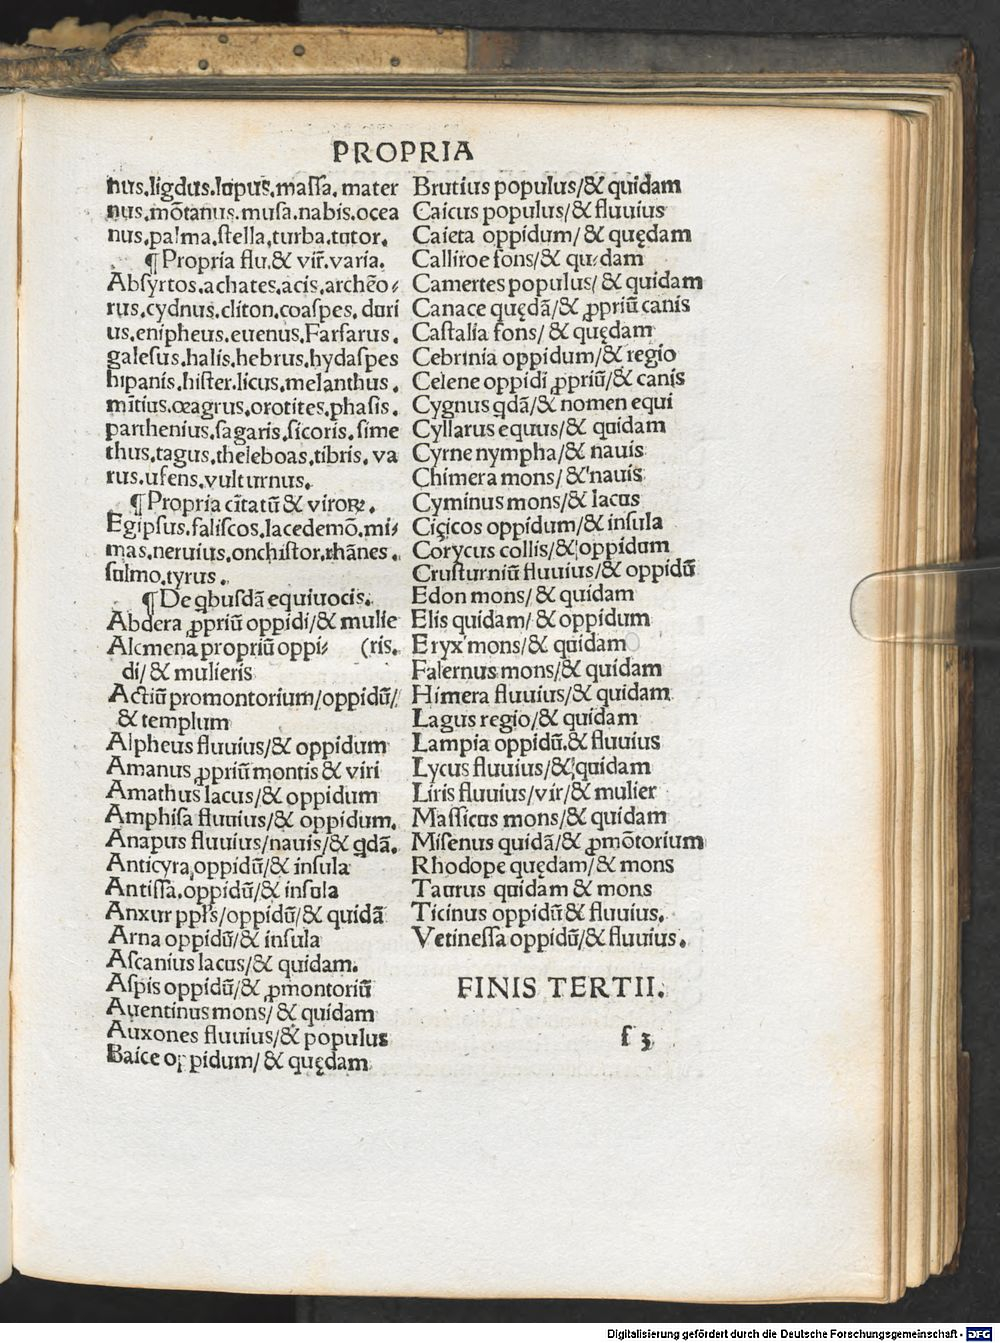 PROPRIA
nus.ligdus.lupus.maſſa.mater
nus.mōtanus.muſa.nabis.ocea
nus.palma.ſtella.turba.tutor.
¶ Propria flu.& vir̄.varia.
Abſyrtos.achates.acis.archēo⸗
rus.cydnus.cliton.coaſpes.duri
us.enipheus.euenus.Farfarus.
galeſus.halis.hebrus.hydaſpes
hipanis.hiſter.licus.melanthus.
mītius.œagrus.orotites.phaſis.
parthenius.ſagaris.ſicoris.ſime
thus.tagus.theleboas.tibris.va
rus.ufens.vulturnus.
¶ Propria cītatū & viroꝝ.
Egipſus.faliſcos.lacedemō.mi⸗
mas.neruius.onchiſtor.rhānes.
ſulmo.tyrus.
¶ De qbuſdā equiuocis.
Abdera ꝓpriū oppidi/& mulie
Alcmena propriū oppi⸗ (ris.
di/& mulieris
Actiū promontorium/oppidū/
& templum
Alpheus fluuius/& oppidum
Amanus ꝓpriū montis & viri
Amathus lacus/& oppidum
Amphiſa fluuius/& oppidum.
Anapus fluuius/nauis/& qdā.
Anticyra oppidū/& inſula
Antiſſa.oppidū/& inſula
Anxur ppl's/oppidū/& quidā
Arna oppidū/& inſula
Aſcanius lacus/& quidam.
Aſpis oppidū/& ꝓmontoriū
Auentinus mons/& quidam
Auxones fluuius/& populus
Baice oppidum/& quędam
Brutius populus/& quidam
Caicus populus/& fluuius
Caieta oppidum/& quędam
Calliroe fons/& quędam
Camertes populus/& quidam
Canace quędā/& ꝓpriū canis
Caſtalia fons/& quędam
Cebrinia oppidum/& regio
Celene oppidi ꝓpriū/& canis
Cygnus qdā/& nomen equi
Cyllarus equus/& quidam
Cyrne nympha/& nauis
Chimera mons/& nauis
Cyminus mons/& lacus
Ciçicos oppidum/& inſula
Corycus collis/& oppidum
Cruſturniū fluuius/& oppidū
Edon mons/& quidam
Elis quidam/& oppidum
Eryx mons/& quidam
Falernus mons/& quidam
Himera fluuius/& quidam
Lagus regio/& quidam
Lampia oppidū.& fluuius
Lycus fluuius/& quidam
Liris fluuius/vir/& mulier
Maſſicus mons/& quidam
Miſenus quidā/& ꝓmōtorium
Rhodope quędam/& mons
Taurus quidam & mons
Ticinus oppidū & fluuius.
Vetineſſa oppidū/& fluuius.
FINIS TERTII.
f 3
Digitalisierung gefördert durch die Deutsche Forschungsgemeinschaft - DFG